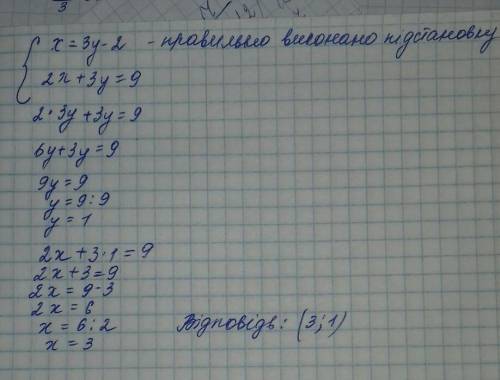 x = 3y - 2 - правильно виконано підстановку
2x + 3y = 9
2 * 3y + 3y = 9
6y + 3y = 9
9y = 9
y = 9 : 9
y = 1
2x + 3 · 1 = 9
2x + 3 = 9
2x = 9 - 3
2x = 6
x = 6 : 2
x = 3
Відповідь: (3; 1)